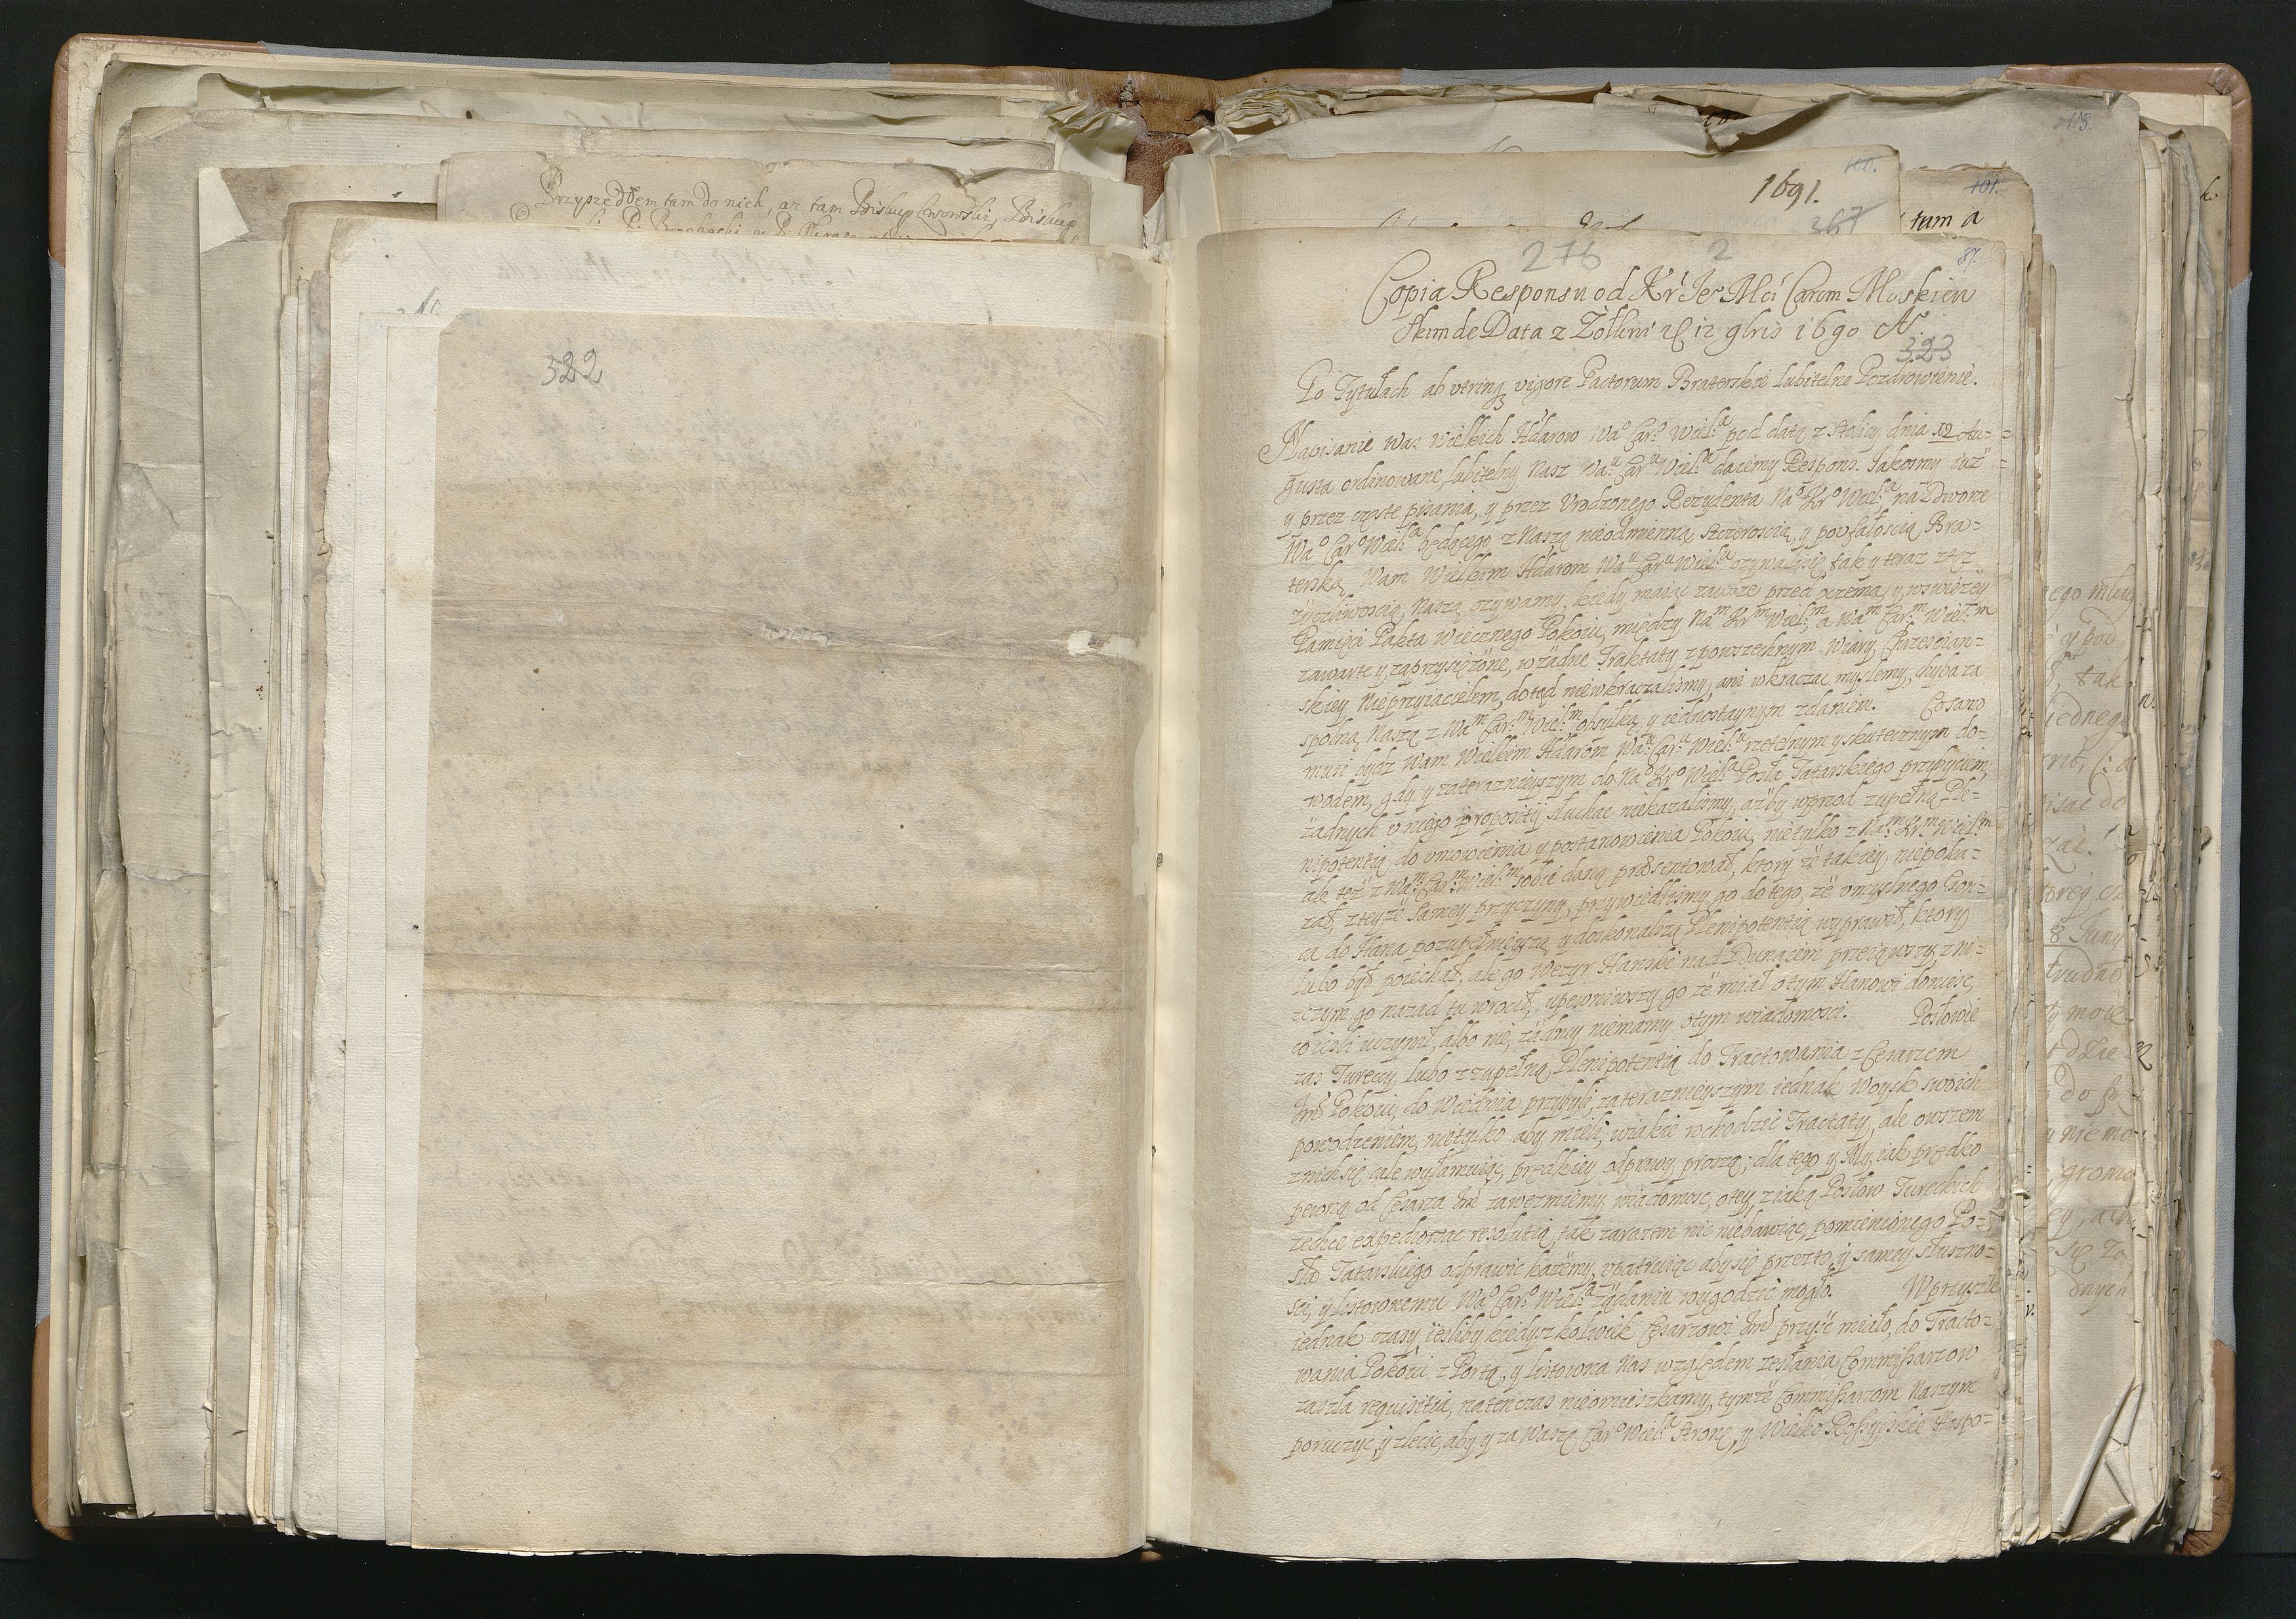 Przyszedłem tam do nich, aż tam Biskup Lwowski, Biskup
322
413.
1691.
101.
367
tum a
276 2
87.
Copia Responsu od Kr Je° Mci Carom Moskiew
skim de Data z Zołkwi D 12 9bris 1690 A°.
323
Po Tytułach ab utrinq vigore Pactorum Braterskie lubitelne Pozdrowienie.
Napisanie was wielkich Hdarow Wa° Car° Wiel:a pod datą z Stolicy dnia 12 Au=
gusta ordinowane, lubitelny Nasz Wa:u Car:u Wiel:a daiemy Respons. Jakosmy iuż
y przez częste pisania, y przez Urodzonego Rezydenta Na° Kr° Wiel:a na Dworze
Wa° Car° Wiel:a będącego z Naszą nieodmienną sczerością, y poufałością Bra=
terską Wam Wielkim Hdarom Wa:u Car:u Wiel:u ozywali się, tak y teraz z tąż
życzliwoscią Naszą ozywamy, kiedy maiąc zawsze przed oczema, y w swiezey
Pamięci Pakta Wiecznego Pokoiu, między Na:m Kr:m Wiel:m, a Wa:m Car:m Wiel:m
zawarte y zaprzysiężone, w żadne Traktaty z powszechnym Wiary Chrzescian=
skiey Nieprzyiacielem, dotąd niewkraczalismy, ani wkraczac myslemy, chyba za
spolną Naszą z Wa:m Car:m Wiel:m obsyłką, y iednostaynym zdaniem. Co samo
musi bydz Wam Wielkim Hdarom Wa:u Car:u Wiel:u rzetelnym y skutecznym do=
wodem, gdy y za teraznieyszym do Na° Kr° Wiel:a Posła Tatarskiego przybyciem,
żadnych u niego propositij słuchac niekazalismy, ażby wprzod zupełną Ple=
nipotentią do umowienia y postanowienia Pokoiu, nietylko z Na:m Kr:m Wiel:m
ale też z Wa:m Car:m Wiel:m sobie daną praesentował, ktory że takiey niepoka=
zał, z teyże samey przyczyny, przywiedlismy go do tego, że umyslnego Gon=
ca do Hana po zupełnieyszą y doskonalszą Plenipotentią wyprawił, ktory
lubo był poiechał, ale go Wezyr Hanski nad Dunaiem przeiąwszy, z ni=
czym go nazad tu wrocił, upewniwszy go że miał o tym Hanowi doniesc,
co iesli uczynił, albo nie, żadney niemamy o tym wiadomosci. Posłowie
zas Tureccy lubo z zupełną Plenipotentią do Tractowania z Cesarzem
Jm° Pokoiu, do Wiednia przybyli, za teraznieyszym iednak Woysk swoich
powodzeniem, nietylko aby mieli w iakie wchodzic Tractaty, ale owszem
z nich się cale wyłamuiąc, prędkiey odprawy proszą; dla tego y My, iak prędko
pewną od Cesarza Jm° zawezmiemy wiadomosc, o tey, z iaką Posłow Tureckich
zechce expediowac resolutią, tak zarazem nic niebawiąc, pomienionego Po=
sła Tatarskiego odprawic każemy, upatruiąc aby się przez to, y samey słuszno=
sci, y listownemu Wa° Car° Wiel:a żądaniu wygodzic mogło. W przyszłe
iednak czasy, iesliby kiedyszkolwiek Cesarzowi Jm° przyść miało, do Tracto=
wania Pokoiu z Portą, y listowna Nas względem zesłania Commissarzow
zaszła requisitia, natenczas nieomieszkamy, tymże Commissarzom Naszym
poruczyc, y zlecic, aby y za Waszę Car° Wiel:a stronę, y Wielko Rossyiskie Hospo=